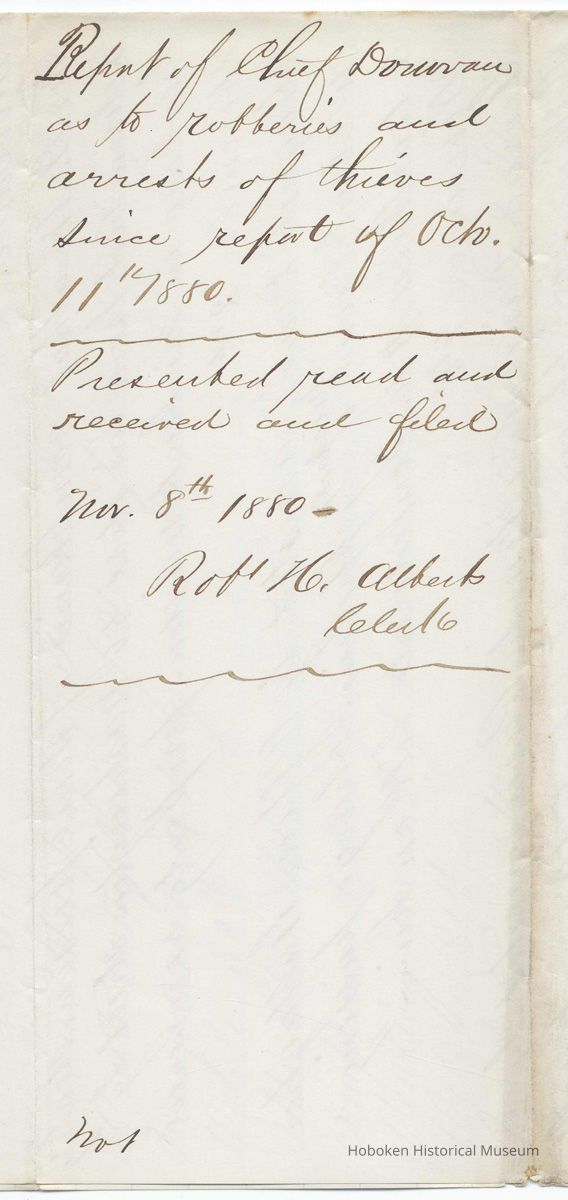 Report of Chief Donovan
as to robberies and
arrests of thieves
since report of Octo.
11th/1880.
Presented read and
received and filed
Nov. 8th 1880-
Robt H. Alberts
Clerk
Not
Hoboken Historical Museum